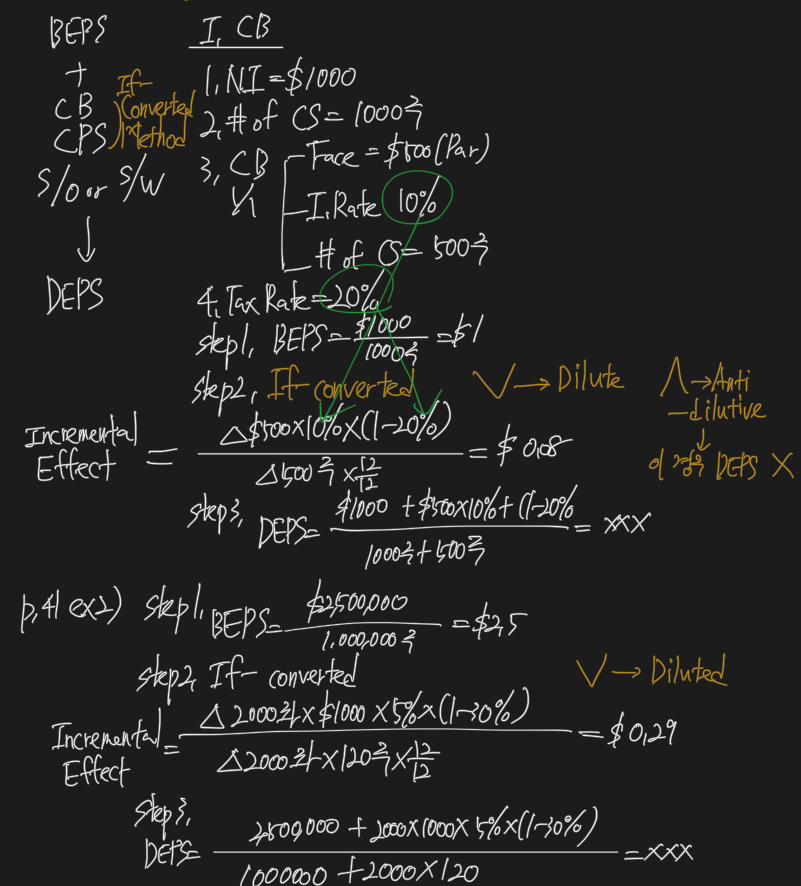 BEPS
+
CB
CPS
If-
Converted
Method
S/O or S/W
↓
DEPS
I, CB
1, NI = $1000
2, # of CS = 1000주
3, CB
Face = $500 (Par)
I, Rate 10%
# of CS = 500주
4, Tax Rate = 20%
step1, BEPS = $1000 / 1000주 = $1
step2, If converted
V → Dilute
Λ → Anti
-dilutive
↓
DEPS X
Incremental Effect = △$500×10%×(1-20%) / △500주×12/12 = $0.08
step3, DEPS = $1000 + $500×10%+(1-20% / 1000주+500주 = xxx
p,41 ex2) step1, BEPS = $2,500,000 / 1,000,000주 = $2,5
step2, If- converted
V → Diluted
Incremental Effect = △2000좌×$1000×5%×(1-30%) / △2000좌×120주×12/12 = $0,29
step3,
DEPS = 2,500,000 + 2000×1000×5%×(1-30%) / 1000000 + 2000×120 = xxx